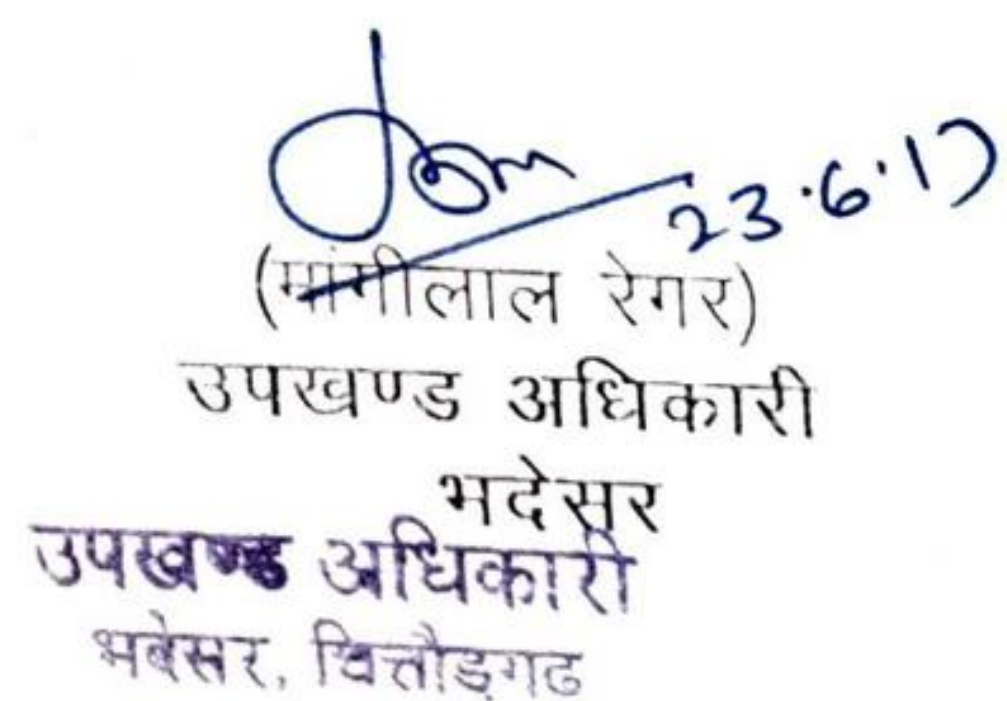 23.6.17
(मांगीलाल रेगर)
उपखण्ड अधिकारी
भदेसर
उपखण्ड अधिकारी
भदेसर, चित्तौड़गढ